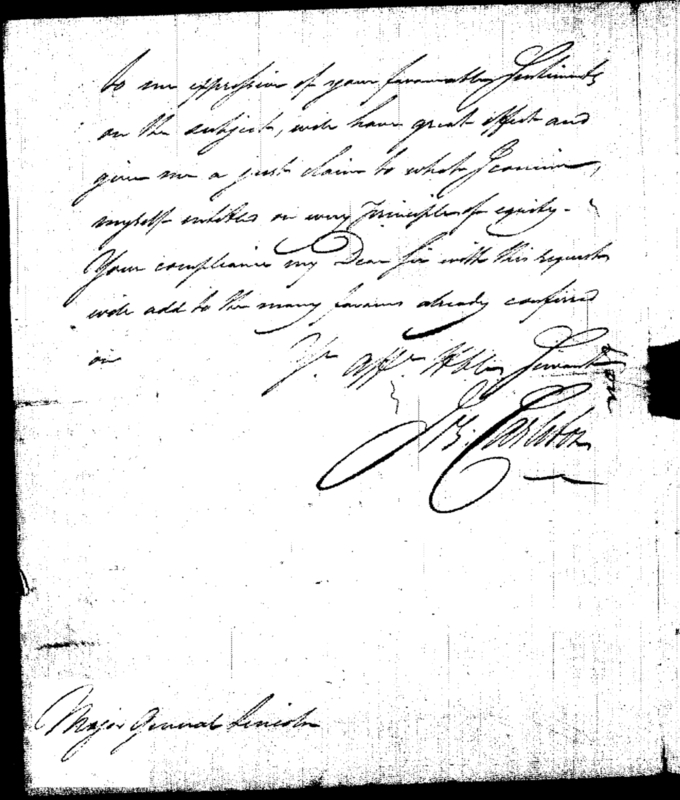 to me expressive of your favourable Sentiments
on the subject, wod. have great effect and
give me a just claim to what I conceive,
myself entitled on every Principle of equity.
Your compliance my Dear Sir with this request
wod. add to the many favours already conferred
on
Yr. Affe. Hble. Servant
Js. Carleton
Major General Lincoln